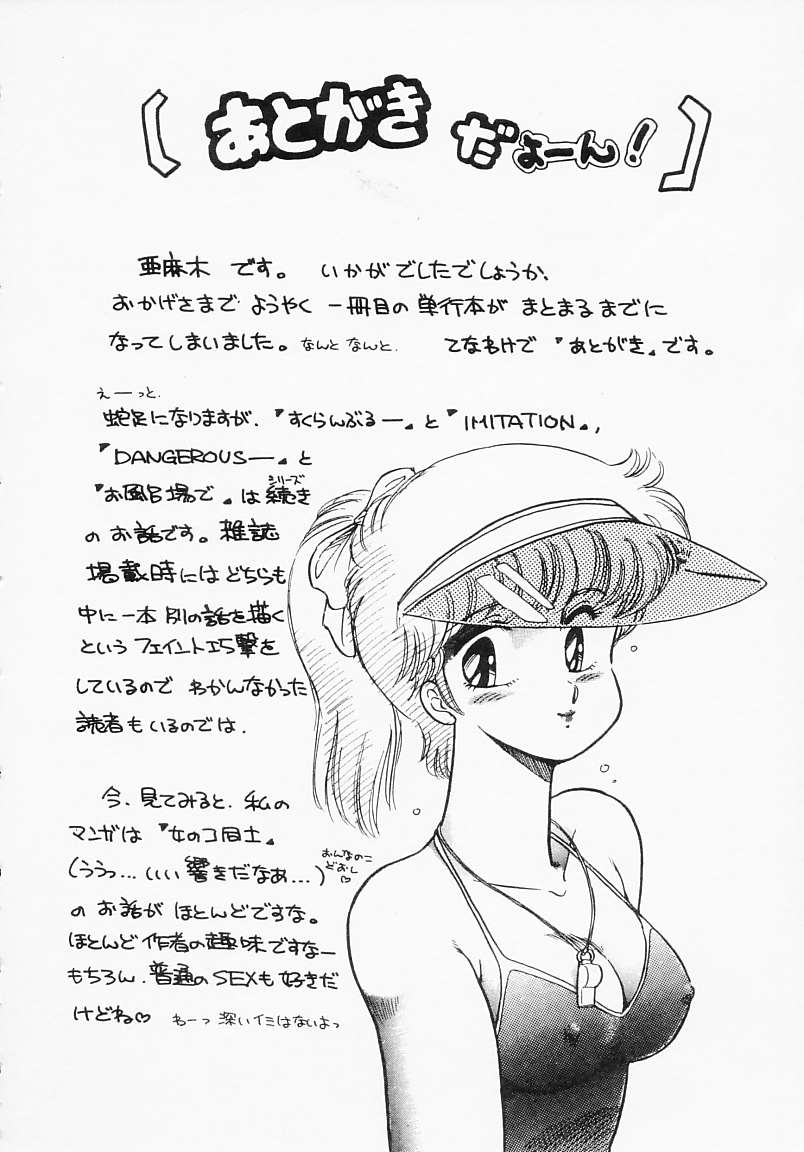 あとがき だよーん!
亜麻木 です。 いかがでしたでしょうか、
おかげさまで ようやく 一冊目の 単行本が まとまるまでに
なってしまいました。なんと なんと、 てなわけで 『あとがき』です。
えーっと、
蛇足になりますが、『すくらんぶるー』と『IMITATION』,
『DANGEROUSー』と
『お風呂場で』は続き
シリーズ
のお話です。雑誌
掲載時にはどちらも
中に一本 別の話を描く
という フェイント攻撃を
しているので わかんなかった
読者もいるのでは、
今、見てみると、私の
マンガは『女のコ同士』
おんなのこ
どおし♡
(ううっ…いい響きだなあ…)
のお話が ほとんどですな。
ほとんど 作者の趣味ですなー
もちろん、普通のSEXも好きだ
けどね♡ わーっ 深いイミはないよっ